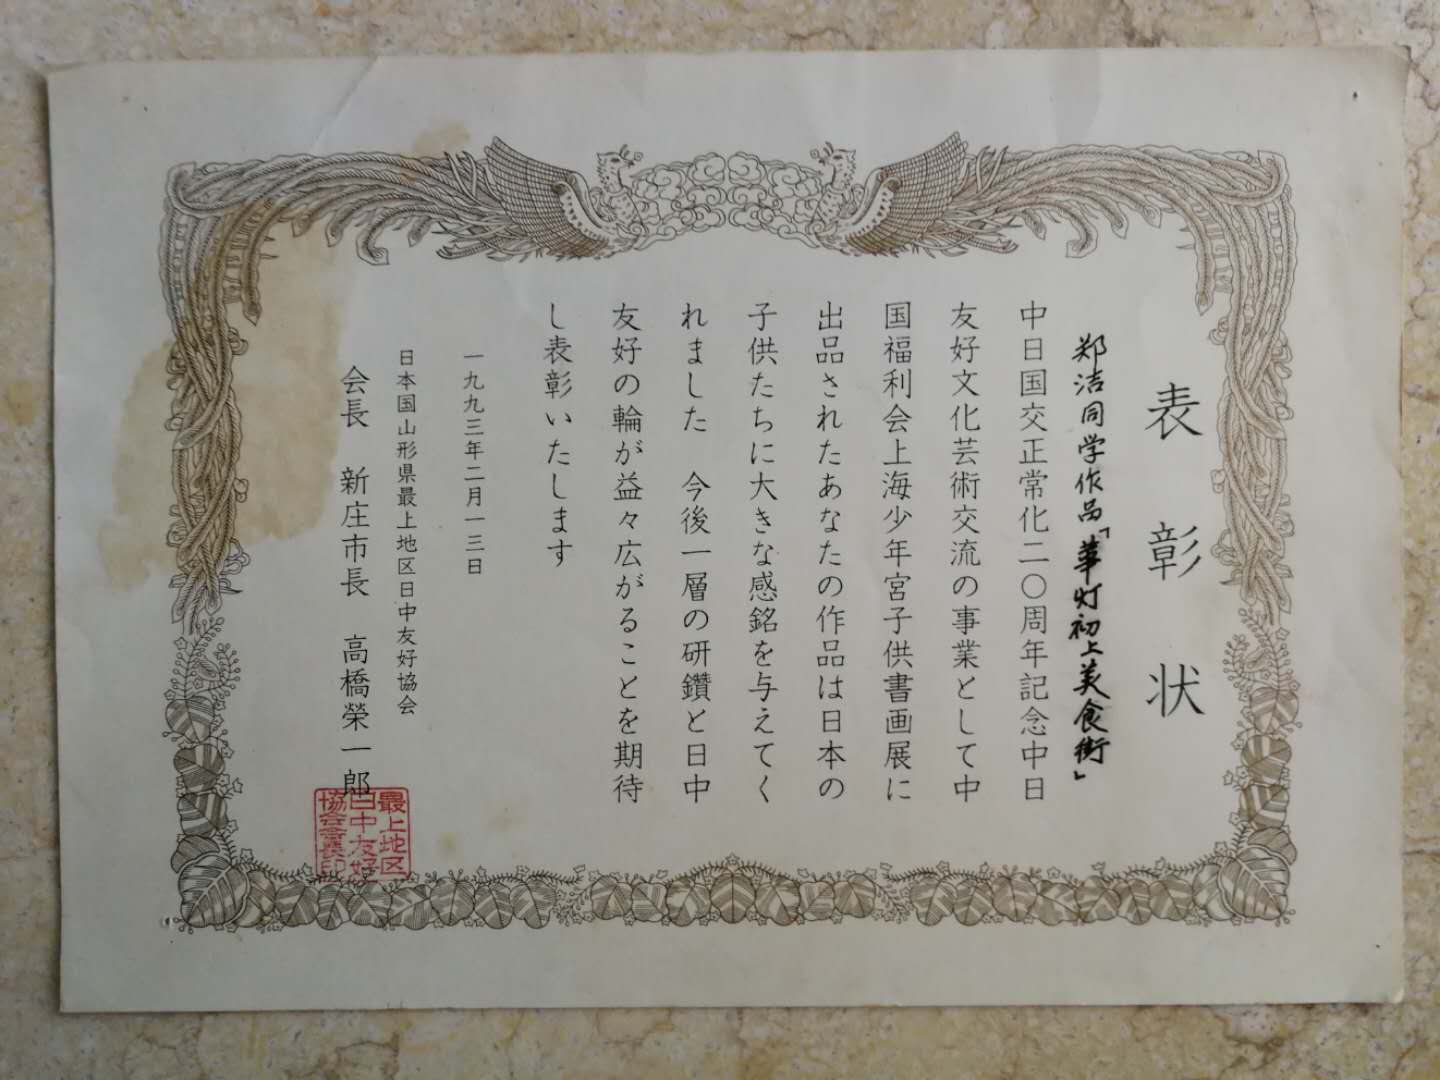 表彰状
郑洁同学作品「华灯初上美食街」
中日国交正常化二〇周年記念中日
友好文化芸術交流の事業として中
国福利会上海少年宮子供書画展に
出品されたあなたの作品は日本の
子供たちに大きな感銘を与えてく
れました 今後一層の研鑽と日中
友好の輪が益々広がることを期待
し表彰いたします
一九九三年二月一三日
日本国山形県最上地区日中友好協会
会長 新庄市長 高橋榮一郎
最上地区
日中友好
協会会長印